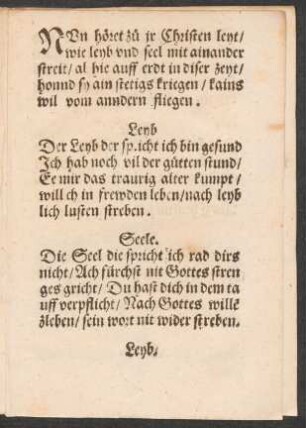 NUn höret zů jr Christen leyt/
wie leyb vnd seel mit ainander
streit/ al hie auff erdt in diser zeyt/
honnd sy ain stetigs kriegen/ kains
wil vom anndern fliegen.
Leyb
Der Leyb der spricht ich bin gesund
Ich hab noch vil der gůtten stund/
Ee mir das traurig alter kumpt/
will ch in frewden leben/nach leyb
lich lusten streben.
Seele.
Die Seel die spricht ich rad dirs
nicht/ Ach fürchst nit Gottes stren
ges gricht/ Du hast dich in dem ta
uff verpflicht/ Nach Gottes willē
zleben/ sein wort nit wider streben.
Leyb/